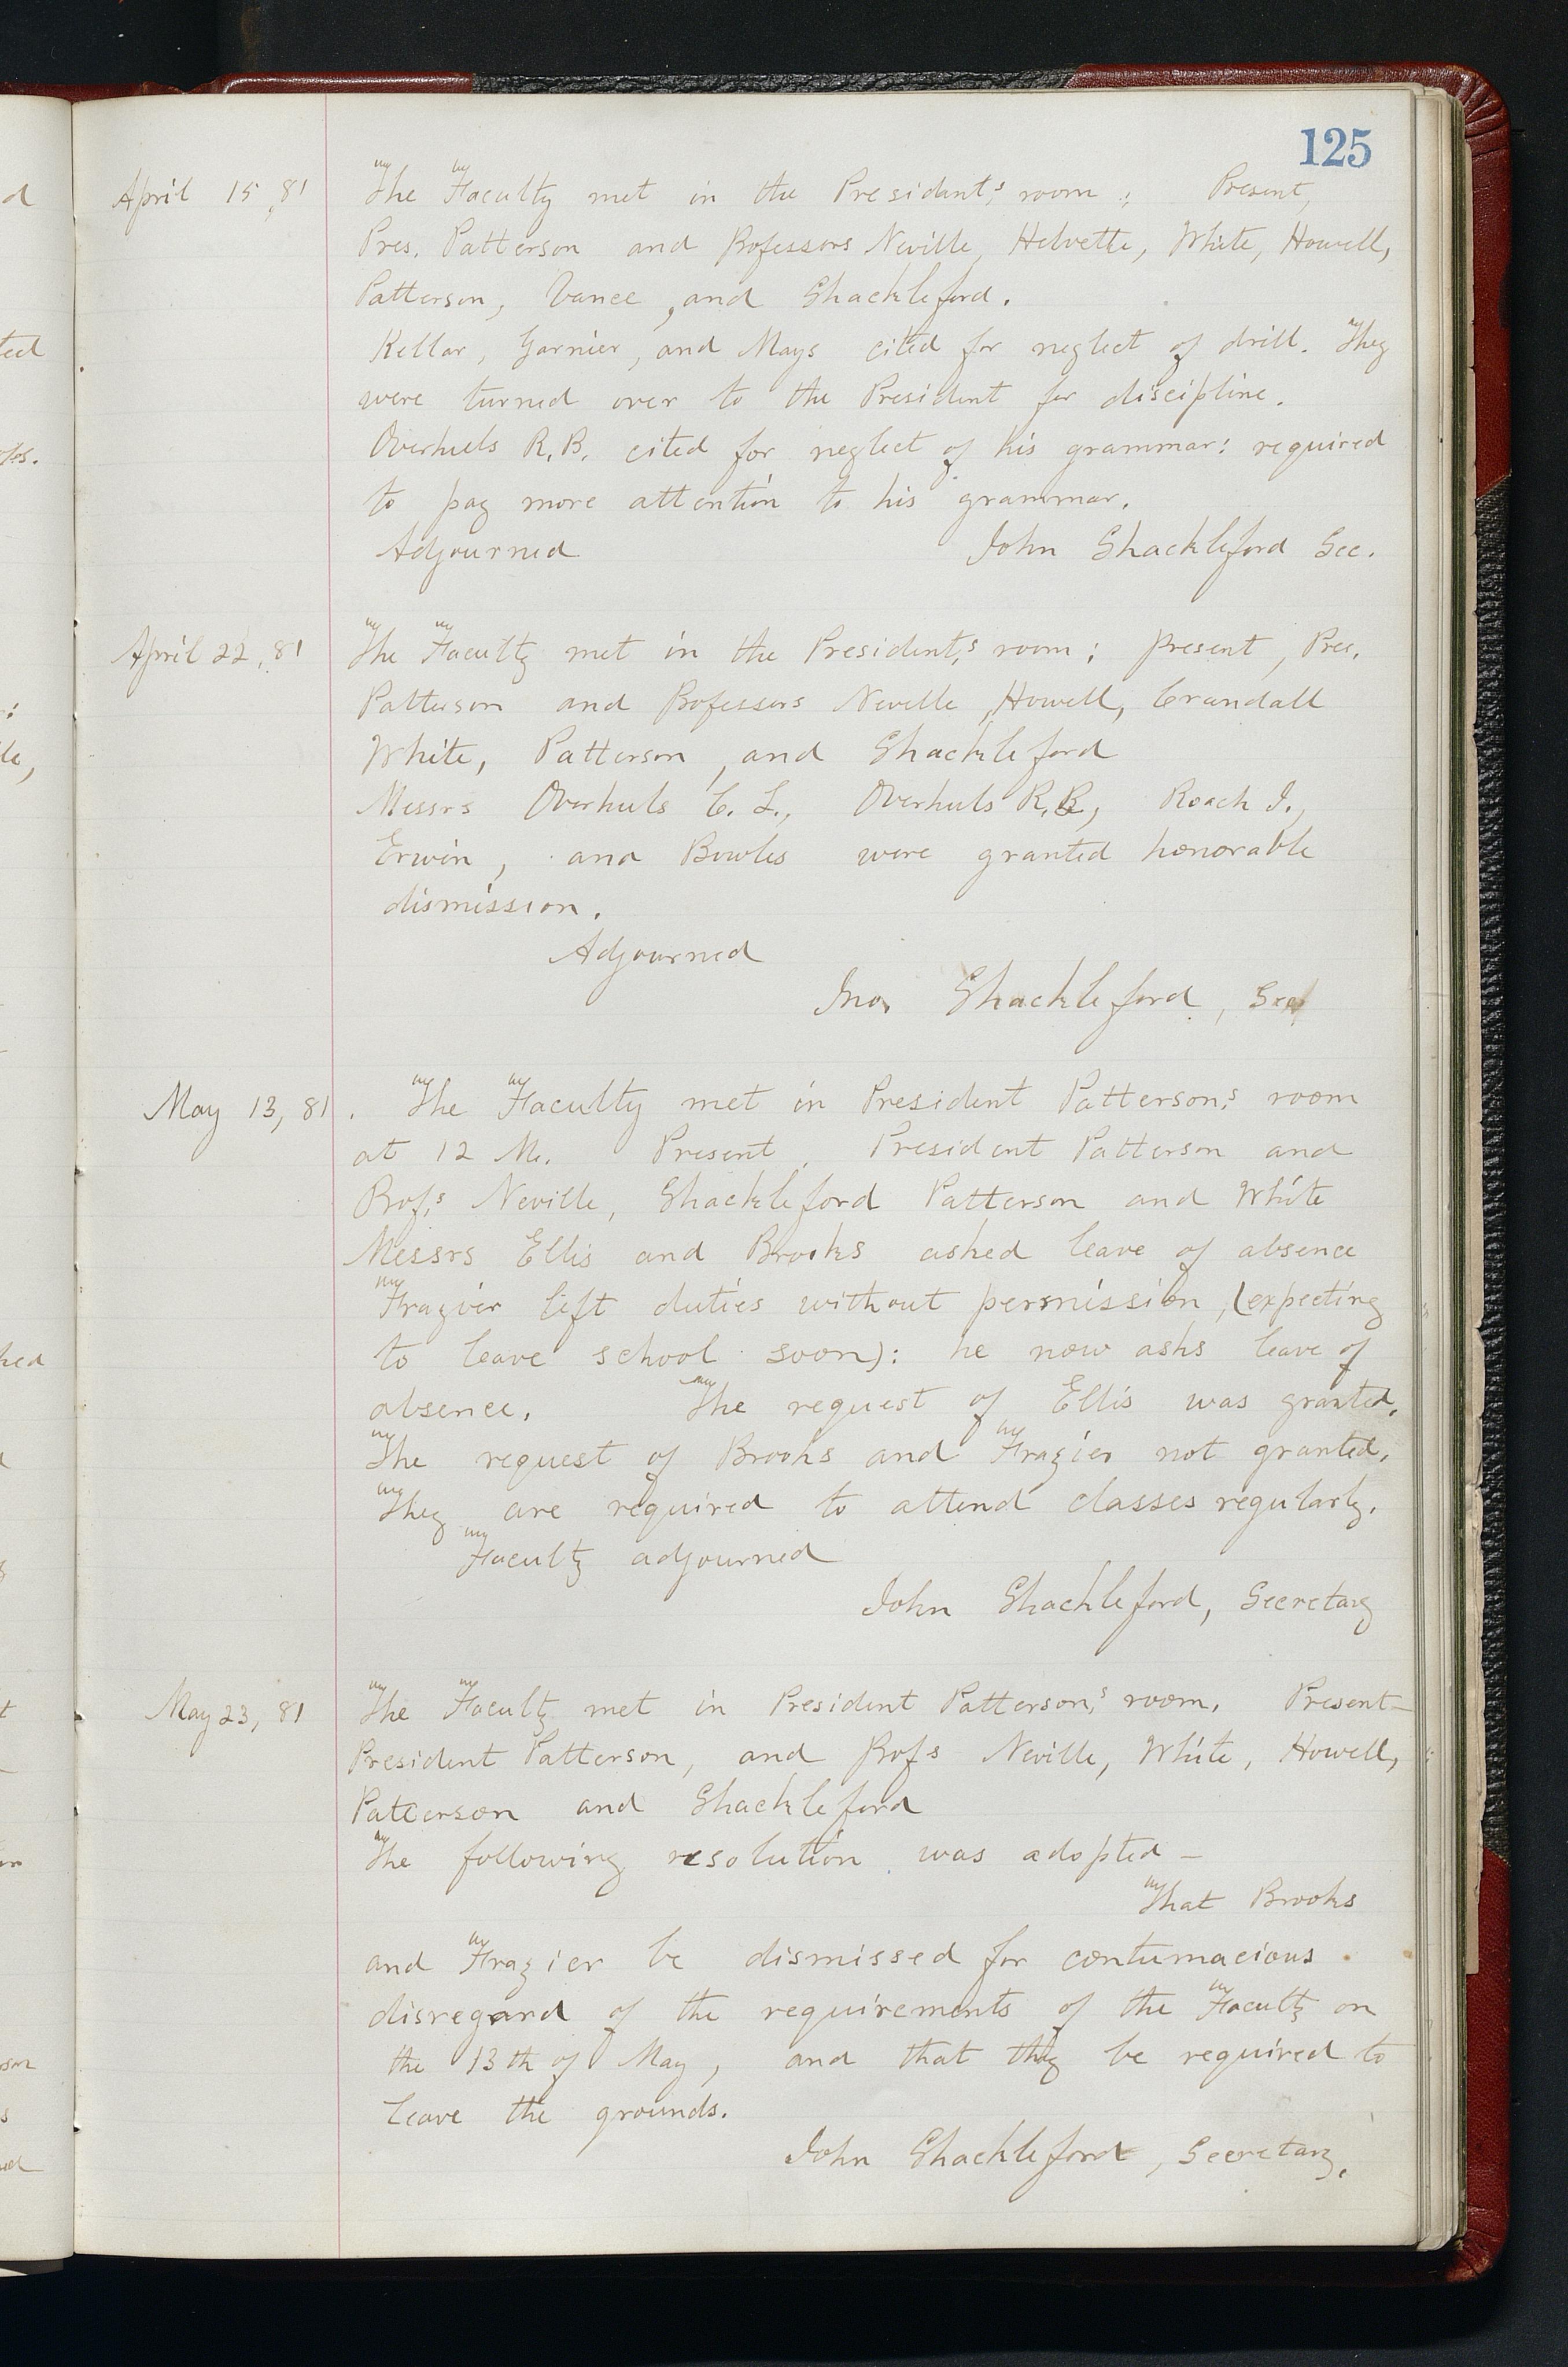 125
April 15, 81 The Faculty met in the President's room; Present,
Pres. Patterson and Professors Neville, Helvette, White, Howell,
Patterson, Vance, and Shackleford.
Kellar, Garnier, and Mays cited for neglect of drill. They
were turned over to the President for discipline.
Overhuls R. B. cited for neglect of his grammar: required
to pay more attention to his grammar.
Adjourned John Shackleford Sec.
April 22, 81 The Faculty met in the President's room; present, Pres.
Patterson and Professors Neville, Howell, Crandall
White, Patterson, and Shackleford
Messrs Overhuls C. L., Overhuls R. B., Roach J.,
Erwin, and Bowles were granted honorable
dismission.
Adjourned
Jno. Shackleford, Sec.
May 13, 81. The Faculty met in President Patterson's room
at 12 M. Present, President Patterson and
Prof's Neville, Shackleford Patterson and White
Messrs Ellis and Brooks asked leave of absence
Frazier left duties without permission, (expecting
to leave school soon): he now asks leave of
absence. The request of Ellis was granted.
The request of Brooks and Frazier not granted.
They are required to attend classes regularly.
Faculty adjourned
John Shackleford, Secretary
May 23, 81 The Faculty met in President Patterson's room. Present—
President Patterson, and Profs Neville, White, Howell,
Patterson and Shackleford
The following resolution was adopted—
That Brooks
and Frazier be dismissed for contumacious
disregard of the requirements of the Faculty on
the 13th of May, and that they be required to
leave the grounds.
John Shackleford, Secretary.